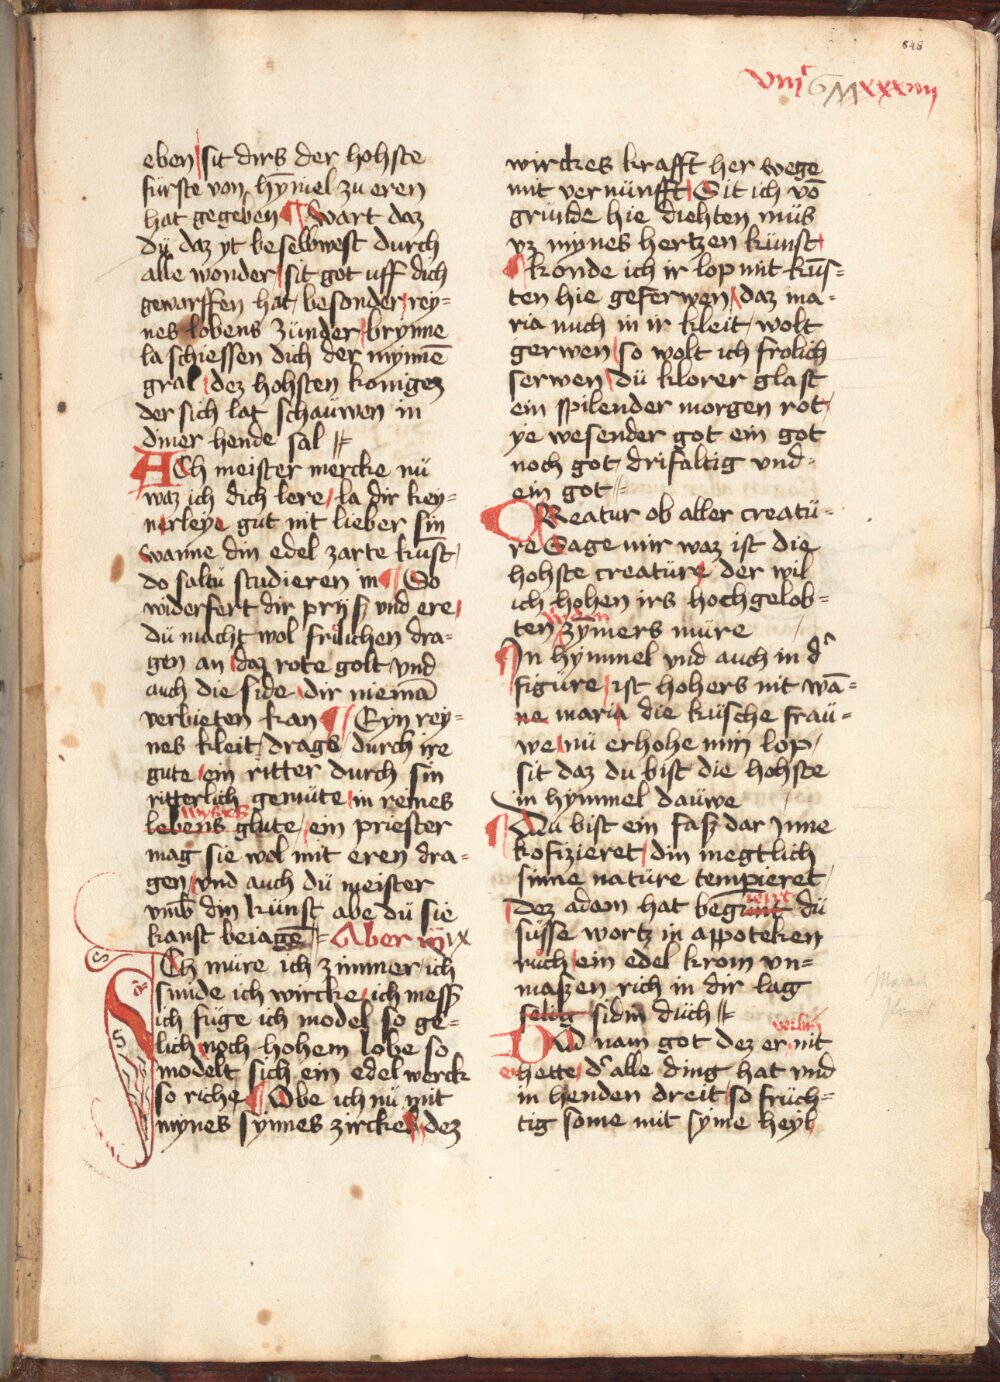 848
viiiᶜ xxxviii
eben sit dirs der hohste
fürste von hȳmel zu eren
hat gegeben ¶ Wart daz
dü daz yt beselbwest durch
alle wonder sit got uff dich
gewarffen hat besonder rey=
nes lobens zünder brynne
la schiessen dich der mynnē
gral dez hohsten koniges
der sich lat schauwen in
diner hende sal
ACh meister mercke nü
waz ich dich lere la dir key=
nerleye gut nit lieber sin
wanne din edel zarte kunst
do saltü studieren in ¶ So
widerfert dir prijß vnd ere
dü macht wol frilichen dra=
gen an daz rote golt vnd
auch die side dir niemā
verbieten kan ¶ Eyn rey=
nes kleit drags durch ire
gute ein ritter durch sin
ritterlich gemüte in reines
lebens glute ein priester
mag sie wol mit eren dra=
gen vnd auch dü meister
vmb din kunst abe dü sie
kanst beiagē Aber
ICh müre ich zimmer ich
smide ich wircke ich meß
ich füge ich model so ge=
lich noch hohem lobe so
modelt sich ein edel werck
so riche ¶ Obe ich nü mit
mynes synnes zirckel dez
wirckes krafft her wege
mit vernünfft Sit ich vō
grunde hie diehten müs
vz mynes hertzen künst
¶ konde ich ir lop mit kuns=
ten hie geferwen daz ma=
ria mich in ir kleit wolt
gerwen so wolt ich frolich
serwen dü klorer glast
ein spilender morgen rot
ye wesender got ein got
noch got drifaltig vnd
ein got
CReatur ob aller creatü=
re Sage mir waz ist die
hohste creature der wil
ich hohen irs hochgelob=
ten zymers müre
In hymmel vnd auch in d'
figüre ist hohers nit wā=
ne maria die küsche fraü=
we nü erhohe min lop
sit daz du bist die hohste
in hymmel dauwe
¶ Dü bist ein faß dar Jnne
kofizieret din megtlich
sinne nature tempieret
dez adam hat begrünt dü
süsse wortz in appoteken
ruch ein edel krom vn=
maßen rich in dir lag
selig sidm düch
DAd nam got dez er nit
hette d' alle ding hat vnd
in henden dreit so früch=
tig some mit syme heyl